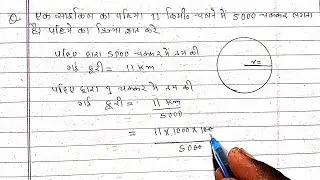 Q. एक साइकिल का पहिया 11 किमी० चलने में 5000 चक्कर लगाता
है। पहिये का त्रिज्या ज्ञात करे
पहिए द्वारा 5000 चक्कर में तय की
गई दूरी = 11 Km
r =
पहिए द्वारा 1 चक्कर में तय की
गई दूरी = 11 Km
5000
= 11 × 1000 × 100
5000